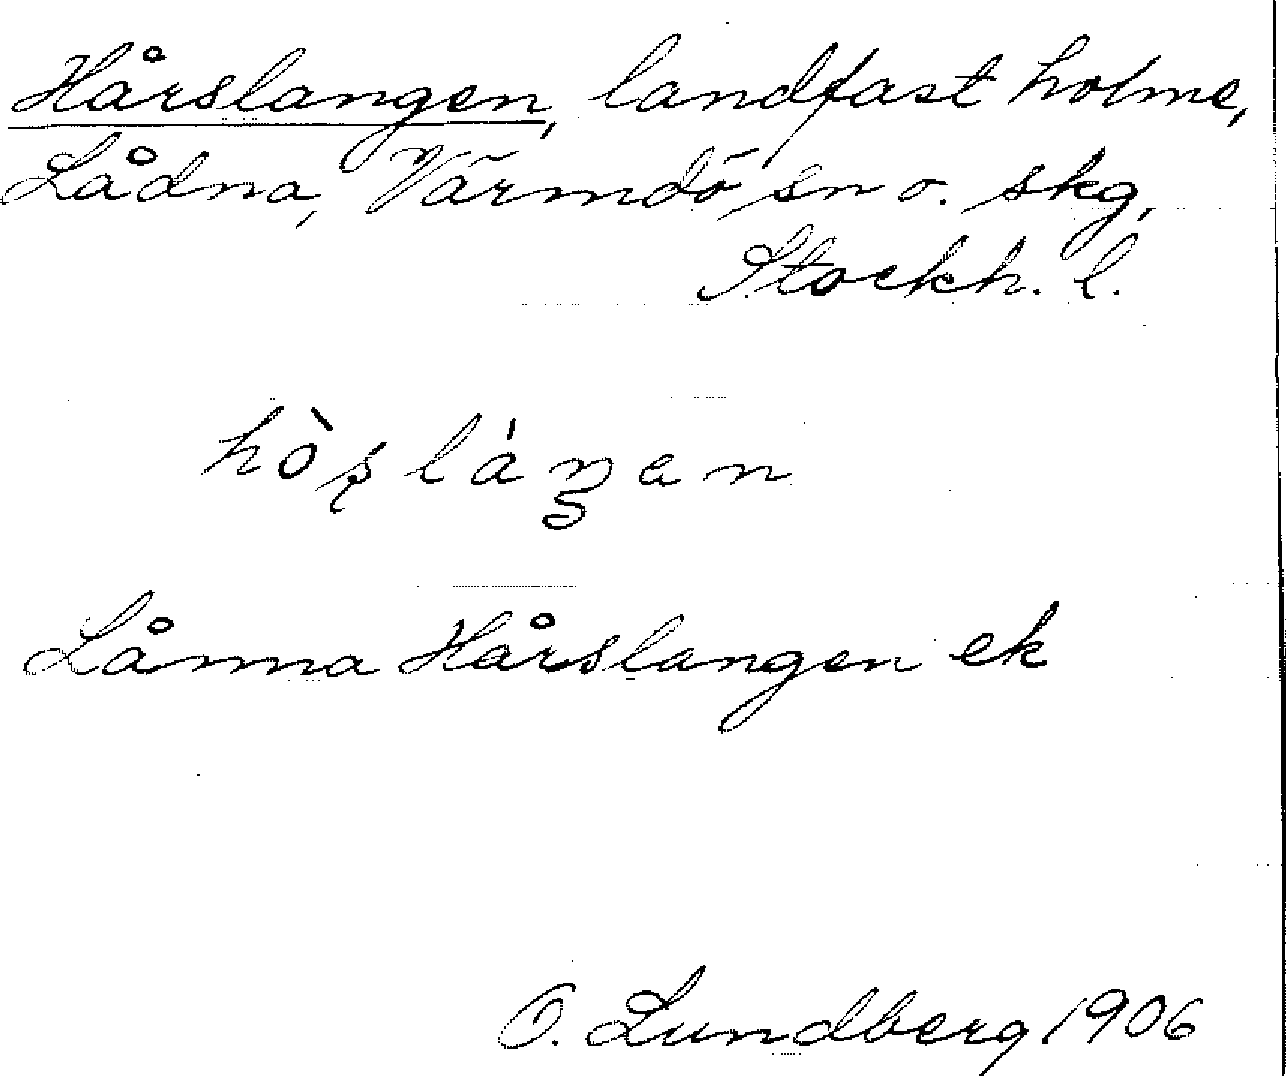 Hårslangen, landfast holme,
Lådna, Värmdö sn o. skg,
Stockh. l.
hòʂláŋen
Lånna Hårslangen ek
O. Lundberg 1906